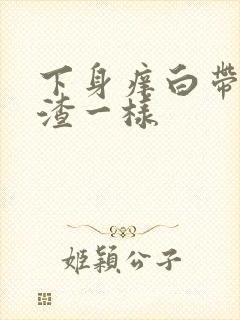 下身痒白带
渣一样
姬颖公子